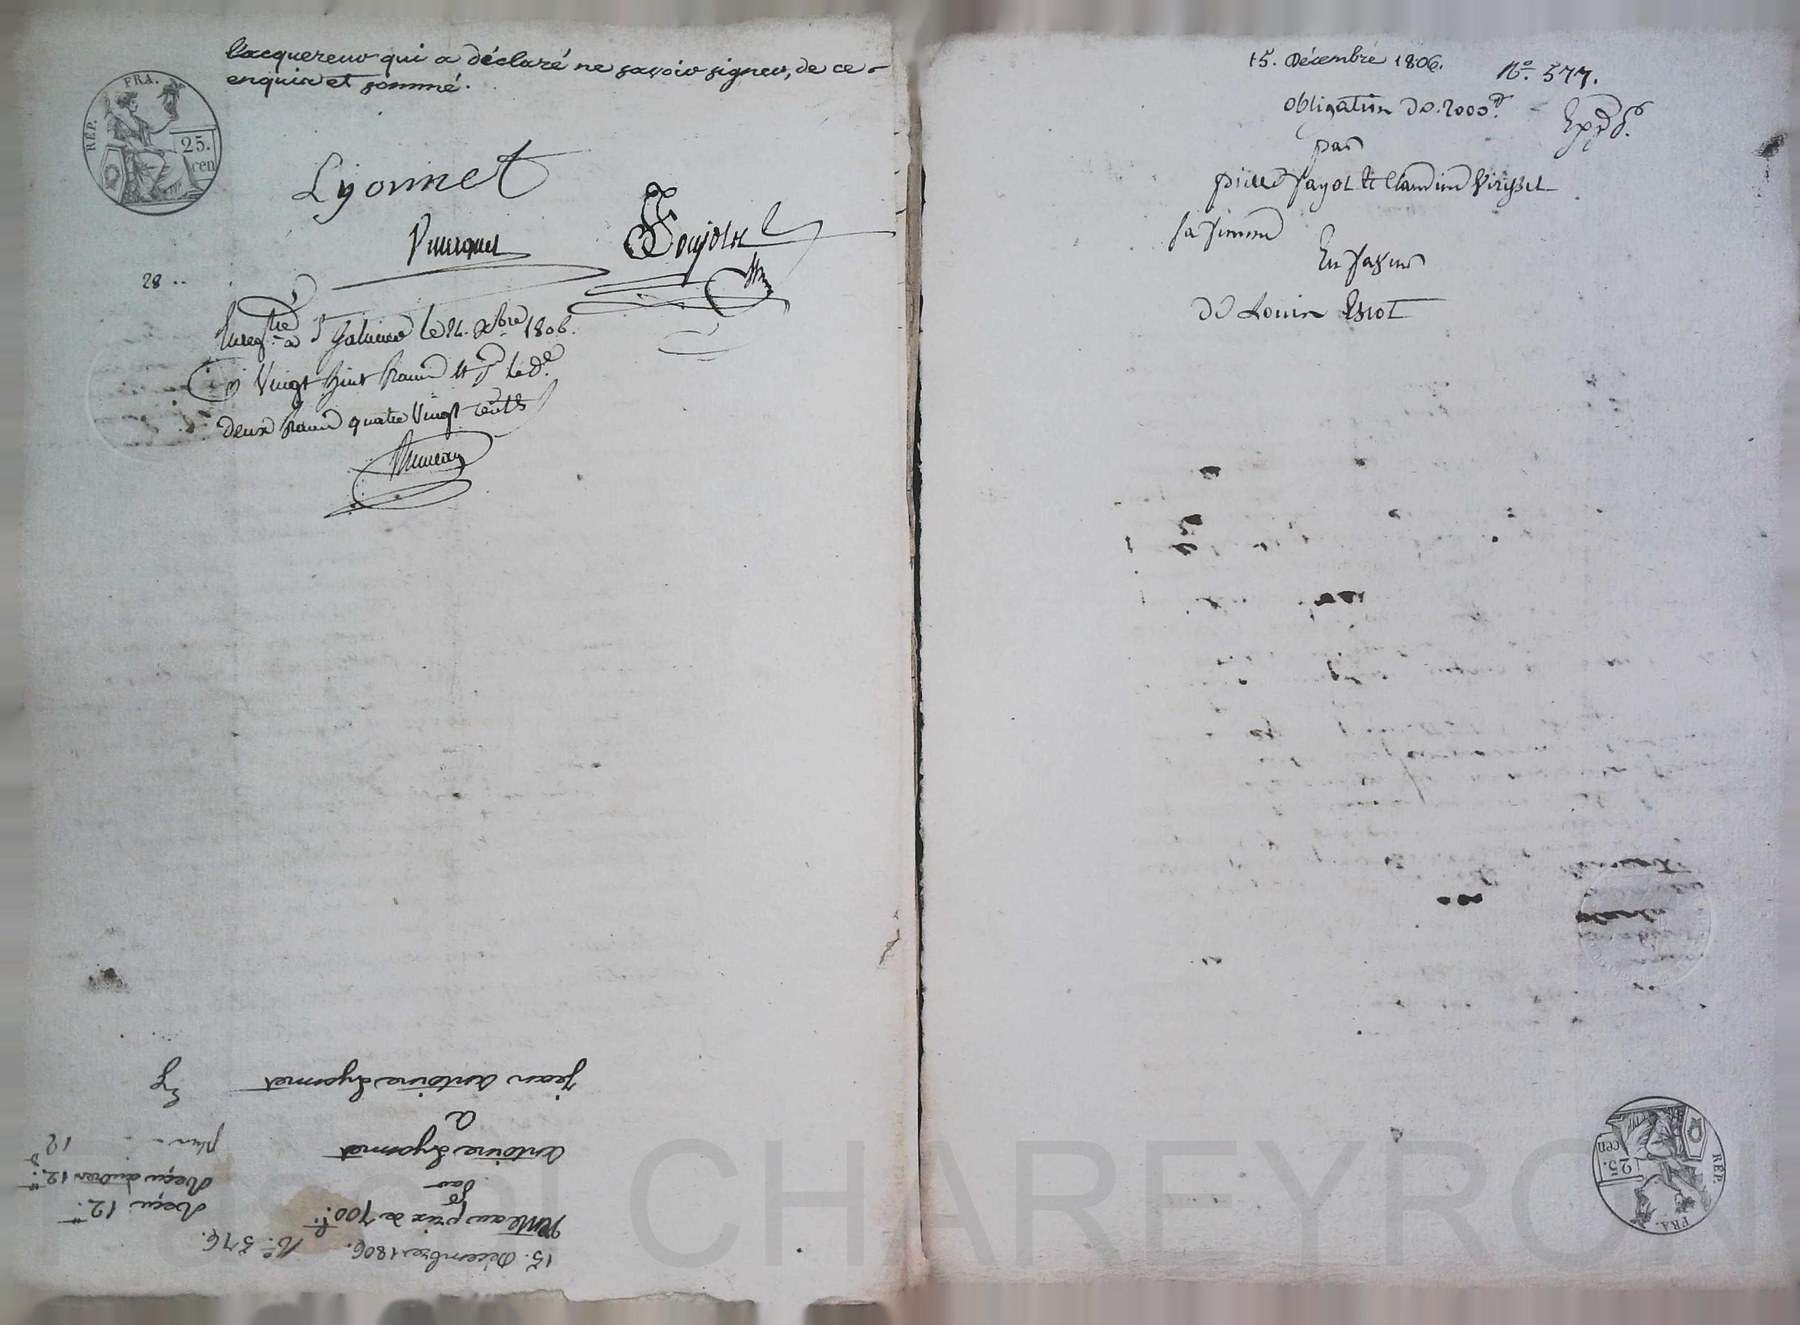 l'acquereur qui a déclaré ne savoir signer, de ce
enquis et sommé.
RÉP. FRA.
25.
cen
Lyonnet
28 ..
Enreg.tré à St Galmier le 24. Xbre 1806.
Vingt huit francs et pr le De.
deux francs quatre Vingt centes
15. Décembre 1806. No. 576.
Vente au prix de 700 f.
par
antoine Lyonnet
a
jean antoine Lyonnet
Reçu 12.
Reçu autres 12.
plus - - 12
15. Décembre 1806. No. 577.
Obligation de 2000 Expd.
par
pierre fayot et Claudine
sa femme
En faveur
de Louis
RÉP. FRA.
25.
cen
Pascal CHAREYRON